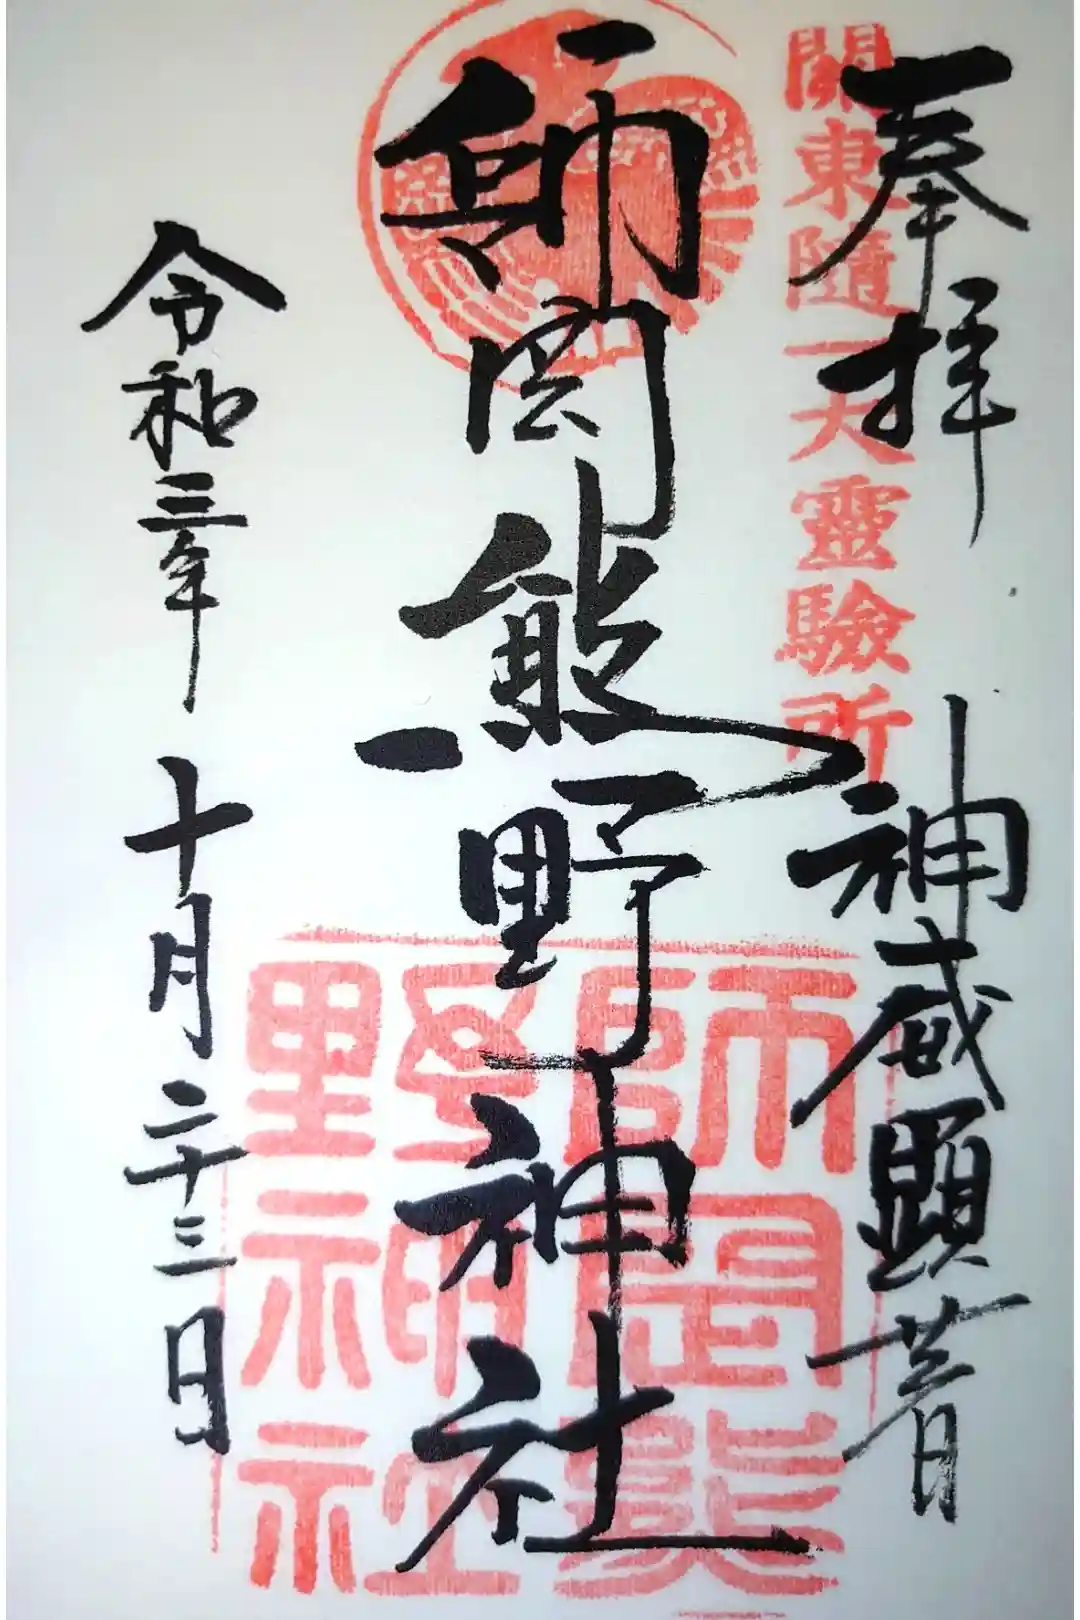 奉拝 神威顕著
關東隨一大靈驗所
師岡熊野神社
師岡熊
野神社
令和三年 十月二十三日